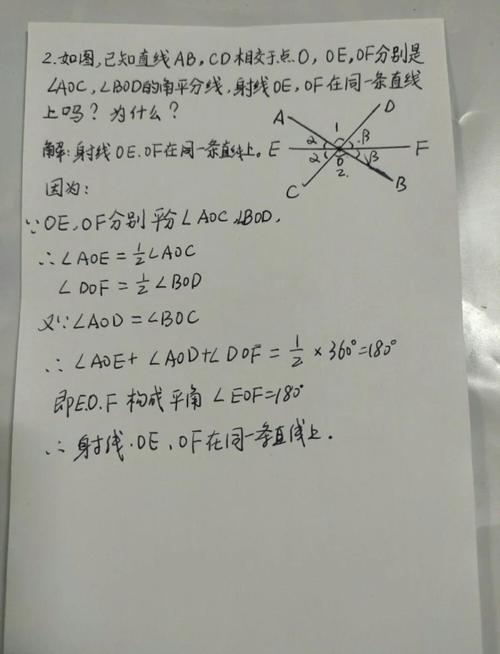 2.如图,已知直线AB,CD相交于点O,OE,OF分别是
∠AOC,∠BOD的角平分线,射线OE,OF在同一条直线
上吗?为什么?
A
D
1
2
β
E
F
2
O
β
2.
C
B
解:射线OE.OF在同一条直线上。
因为:
∵OE,OF分别平分∠AOC,∠BOD,
∴∠AOE=½∠AOC
∠DOF=½∠BOD
又∵∠AOD=∠BOC
∴∠AOE+∠AOD+∠DOF=½×360°=180°
即E.O.F构成平角∠EOF=180°
∴射线.OE、OF在同一条直线上.